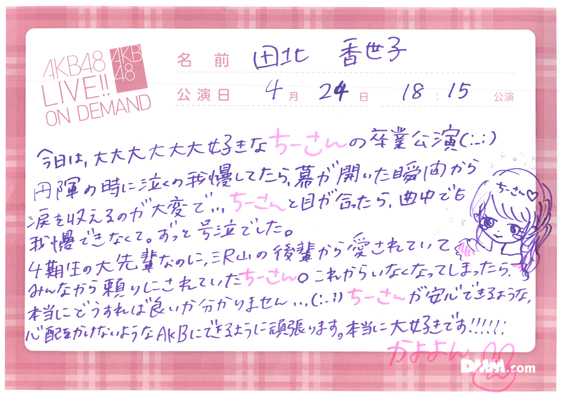 AKB48
LIVE!!
ON DEMAND
AKB
48
名前 田北 香世子
公演日 4月24日 18:15 公演
今日は、大大大大大大好きなちーさんの卒業公演(:_:)
円陣の時に泣くの我慢してたら、幕が開いた瞬間から
涙を収えるのが大変で...ちーさんと目が合ったら、曲中でも
我慢できなくて。ずっと号泣でした。
4期生の大先輩なのに、沢山の後輩から愛されていて
みんなから頼りにされていたちーさん。これからいなくなってしまったら、
本当にどうすれば良いか分かりません...(:_;)ちーさんが安心できるような、
心配をかけないようなAKBにできるように頑張ります。本当に大好きです!!!!!!
ちーさん♡
かよよん
DMM.com